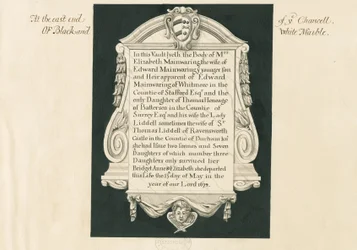 At the east end
Of Black and
of yᵉ Chancell
White Marble.
In this Vault lyeth the Body of Mrs
Elizabeth Mainwaring the wife of
Edward Mainwaring yᵉ younger son
and Heir apparent of Edward
Mainwaring of Whitmore in the
Countie of Stafford Esqr and the
only Daughter of Thomas
of Battersea in the Countie of
Surrey Esqr and his wife the Lady
Liddell sometimes the wife of Sr
Thomas Liddell of Ravensworth
Castle in the Countie of Durham
she had Issue two sonnes and Seven
Daughters of which number three
Daughters only survived her
Bridget Jane & Elizabeth she departed
this Life the day of May in the
year of our Lord